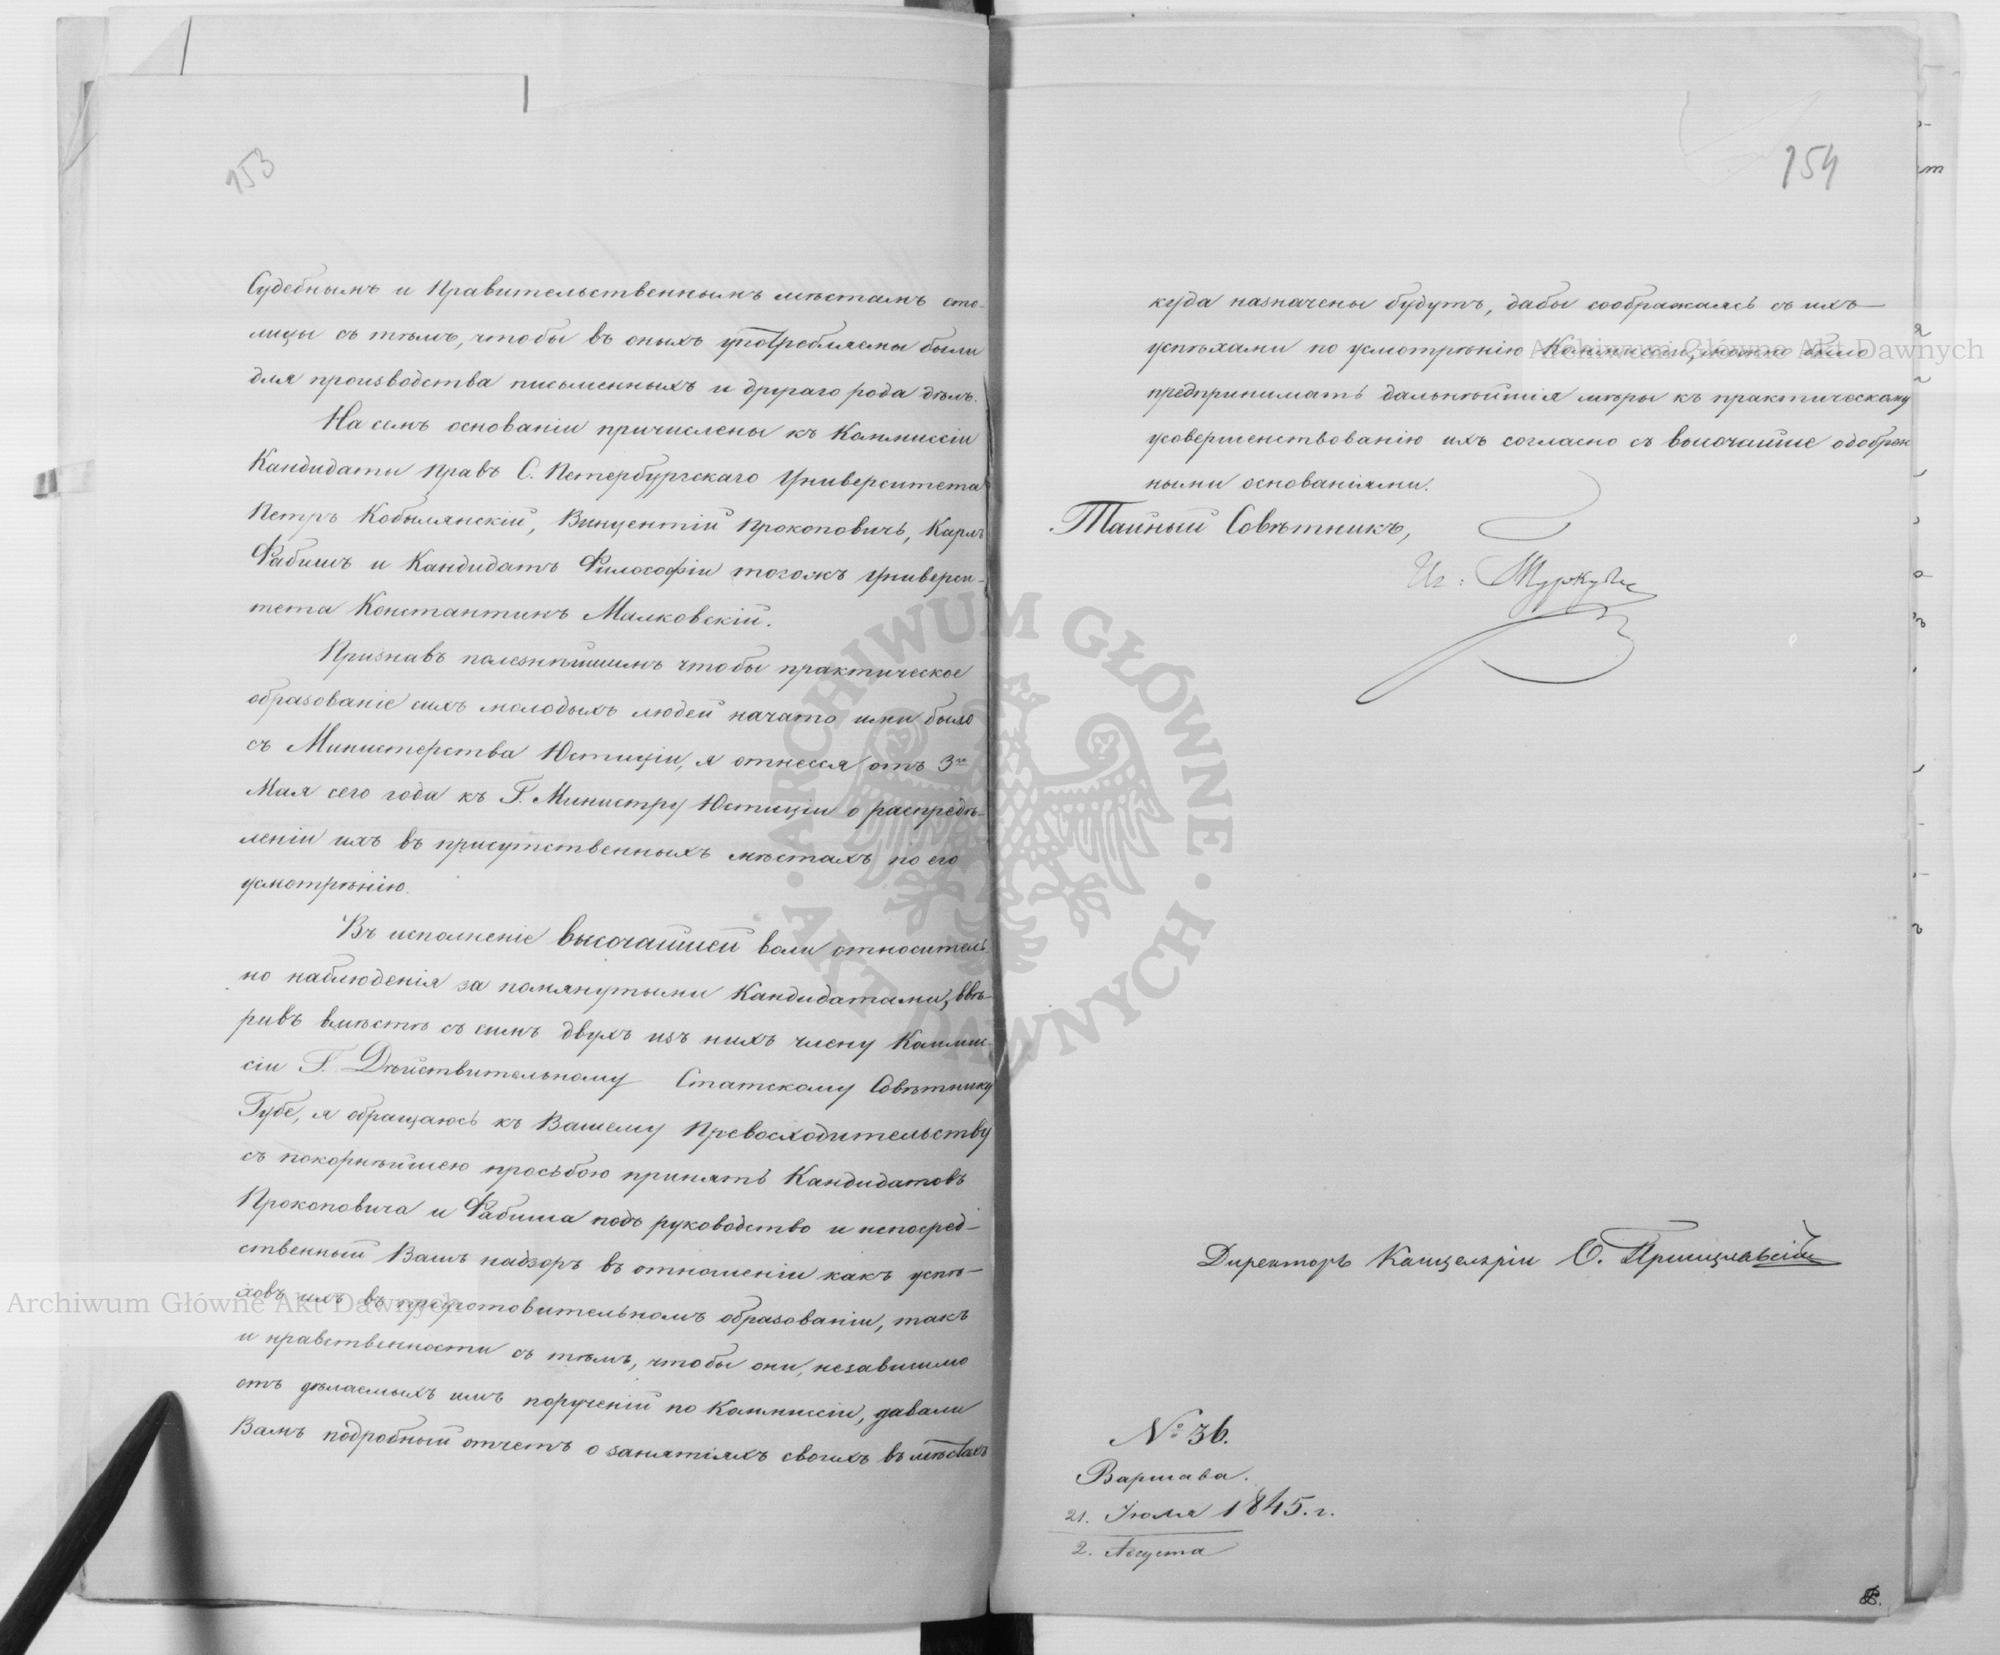 153
Судебнымъ и Правительственнымъ мѣстамъ сто-
лицы съ тѣмъ, чтобы въ оныхъ употребляемы были
для производства письменныхъ и другаго рода дѣлъ.
На семъ основаніи причислены къ Коммиссіи
Кандидаты Правъ С. Петербургскаго Университета
Петръ Кобылянскій, Винцентій Прокоповичъ, Карлъ
Фабишъ и Кандидатъ Философіи тогожъ Универси-
тета Константинъ Малковскій.
Признавъ полезнѣйшимъ чтобы практическое
образованіе сихъ молодыхъ людей начато ими было
съ Министерства Юстиціи, я отнесся отъ 3го
Мая сего года къ Г. Министру Юстиціи о распредѣ-
леніи ихъ въ присутственныхъ мѣстахъ по его
усмотрѣнію.
Въ исполненіе высочайшей воли относитель-
но наблюденія за помянутыми Кандидатами, ввѣ-
ривъ вмѣстѣ съ симъ двухъ изъ нихъ члену Коммис-
сіи Г. Дѣйствительному Статскому Совѣтнику
Губе, я обращаюсь къ Вашему Превосходительству
съ покорнѣйшею просьбою принять Кандидатовъ
Прокоповича и Фабиша подъ руководство и непосред-
ственный Вашъ надзоръ въ отношеніи какъ успѣ-
ховъ ихъ въ приуготовительномъ образованіи, такъ
и нравственности съ тѣмъ, чтобы они, независимо
отъ дѣлаемыхъ имъ порученій по Коммиссіи, давали
Вамъ подробный отчетъ о занятіяхъ своихъ въ мѣстахъ
154
куда назначены будутъ, дабы соображаясь съ ихъ
успѣхами по усмотрѣнію Коммиссіи, можно было
предпринимать дальнѣйшія мѣры къ практическому
усовершенствованію ихъ согласно съ высочайше одобрен
ными основаніями.
Тайный Совѣтникъ,
Иг: Туркулъ
Директоръ Канцеляріи О. Пршецлавскій
№ 36.
Варшава.
21. Іюля 1845. г.
2. Августа
Archiwum Główne Akt Dawnych
Archiwum Główne Akt Dawnych
ARCHIWUM GŁÓWNE · AKT DAWNYCH ·